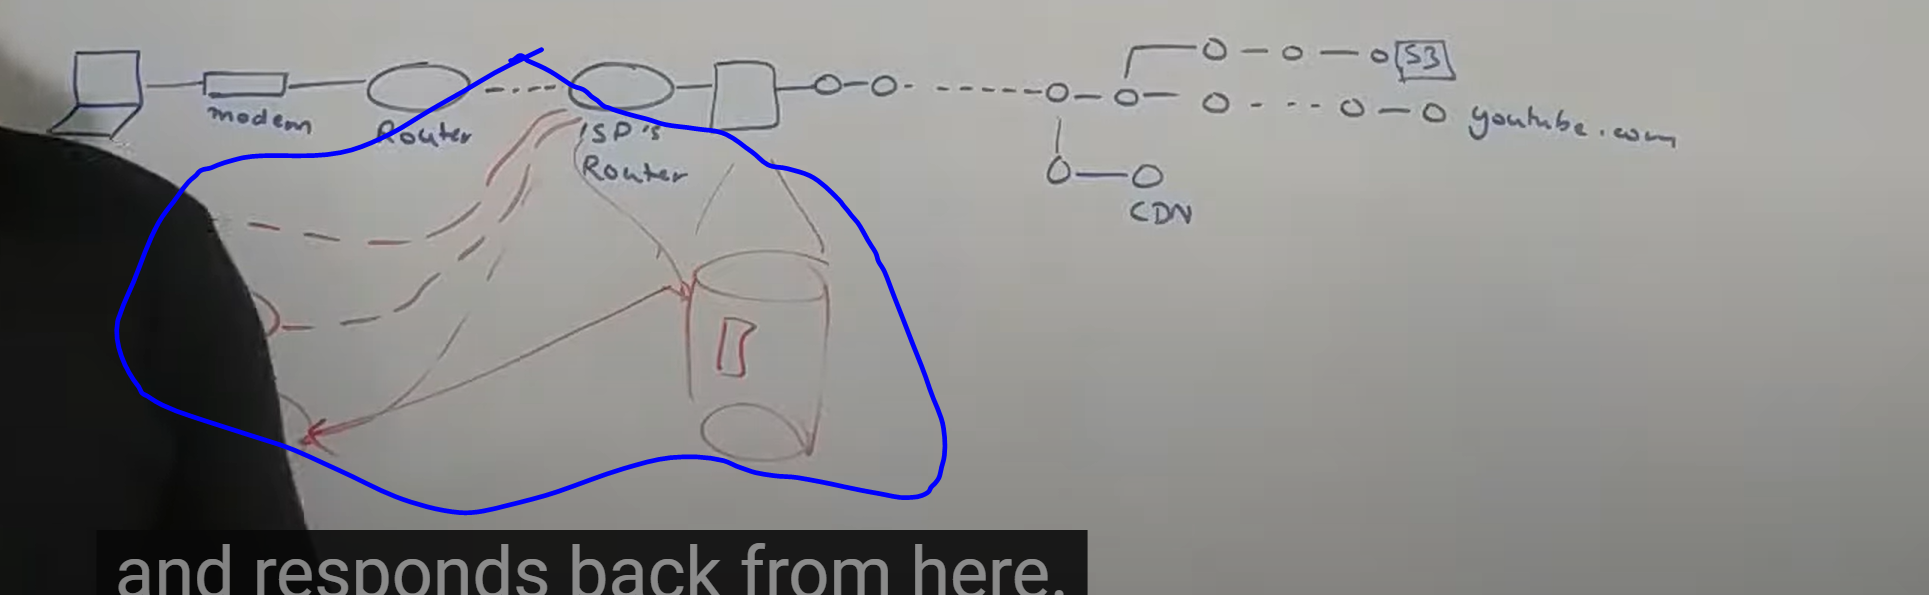 modem
Router
ISP's
Router
S3
youtube.com
CDN
and responds back from here.